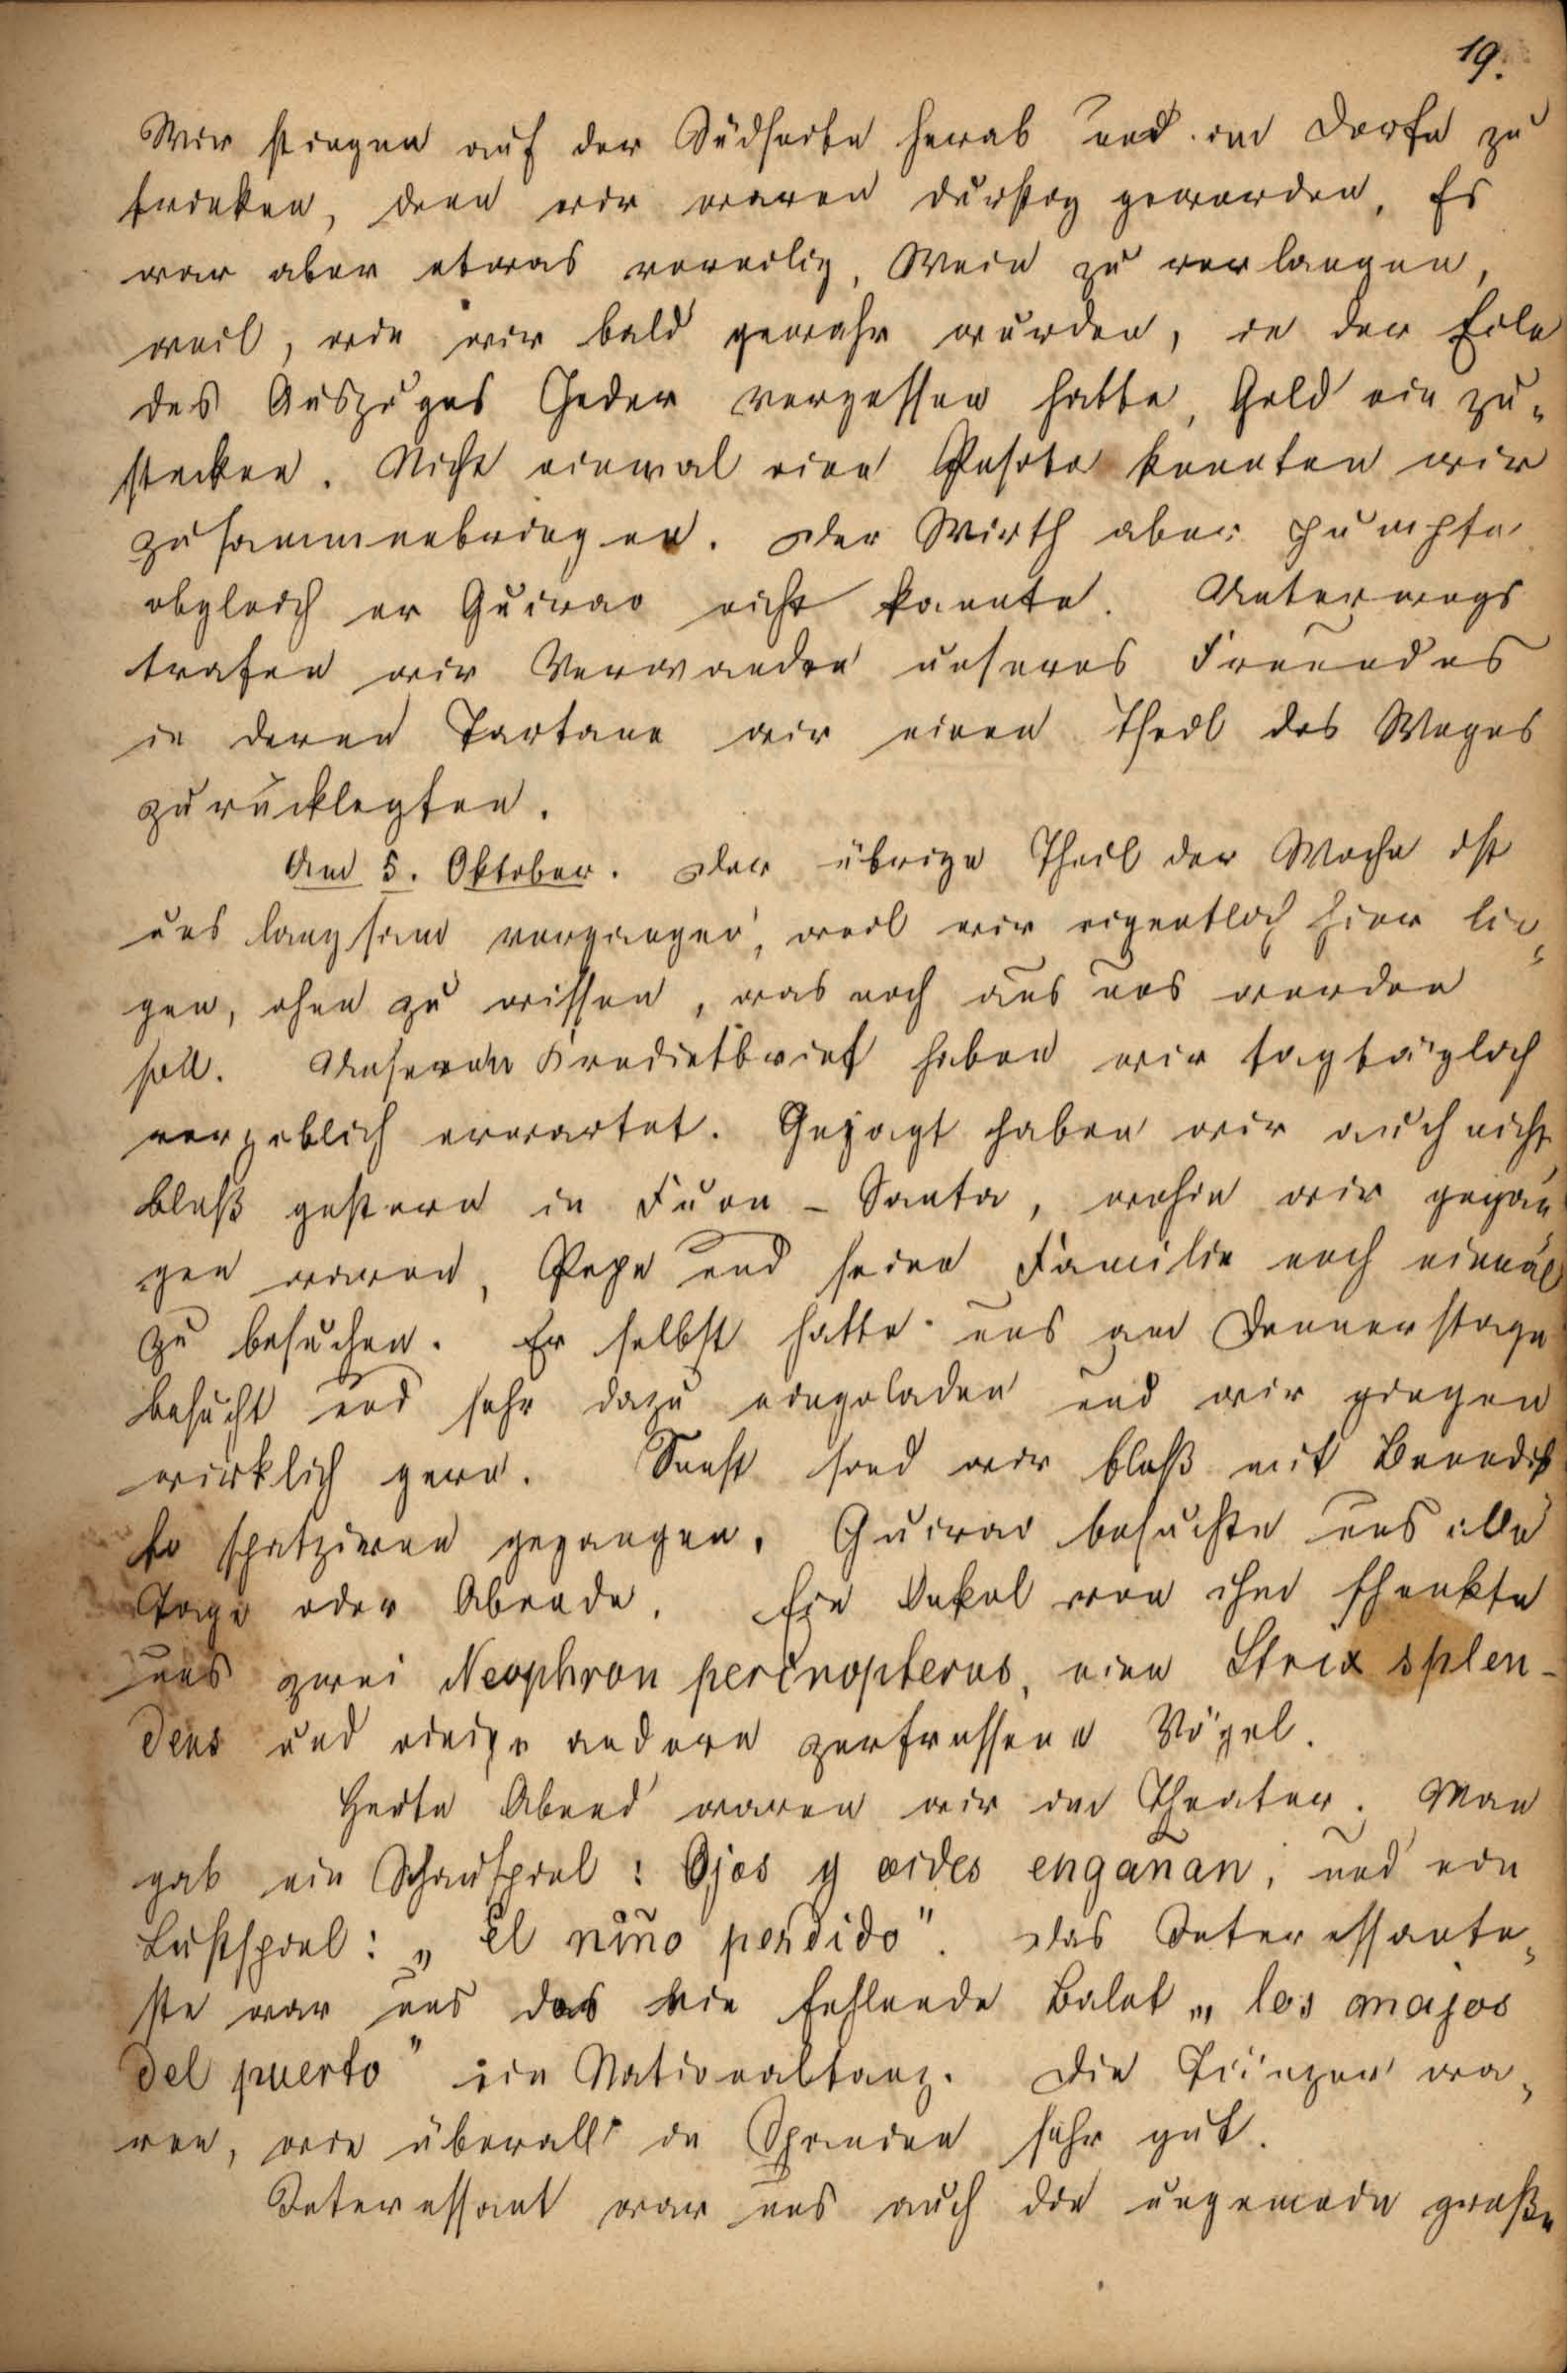 19.
Wir stiegen auf der Südseite herab und im Dorfe zu
trinken, denn wir waren durstig geworden. Es
war aber etwas voreilig, Wein zu verlangen,
weil, wie wir bald gewahr wurden, in der Eile
des Auszuges Jeder vergessen hatte, Geld ein zu-
stecken. Nicht einmal eine Peseta konnten wir
zusammenbringen. Der Wirth aber pumpte
obgleich er Guirao nicht kannte. Unterwegs
trafen wir Verwanden unseres Freundes
in deren Tartane wir einen Theil des Weges
zurücklegten.
Am 5. Oktober. Der übrige Theil der Woche ist
uns langsam vergangen, weil wir eigentlich hier lie-
gen, ohne zu wissen, was noch aus uns werden
soll. Unseren Kreditbrief haben wir tagtäglich
vergeblich erwartet. Gejagt haben wir auch nicht,
bloß gestern in Fuen-Santa, wohin wir gegan
gen waren, Pepe und seine Familie noch einmal
zu besuchen. Er selbst hatte uns am Donnerstage
besucht und sehr dazu eingeladen und wir gingen
wirklich gern. Sonst sind wir bloß mit Benedik
to spatzieren gegangen. Guirao besuchte uns alle
Tage oder Abende. Ein Onkel von ihm schenkte
uns zwei Neophron percnopterus, eine Strix splen-
dens und einige andere zerfressene Vögel.
Heute Abend waren wir im Theater. Man
gab ein Schauspiel: Ojos y oidos engañan, und ein
Lustspiel: „El niño perdido". Das Interessante-
ste war uns das nie fehlende Balet „los majos
del puerto" ein Nationaltanz. Die Tänzer wa-
ren, wie überall in Spanien sehr gut.
Interessant war uns auch die ungemein große